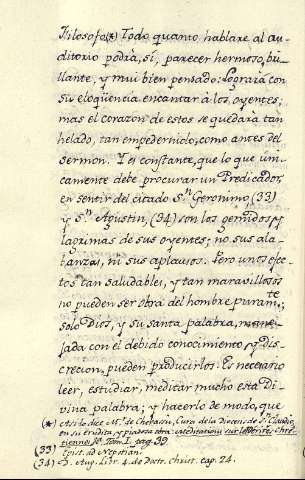 Filosofo(*) Todo quanto hablare al au-
ditorio podrà, si, parecer hermoso, bri-
llante, y mui bien pensado: Logrará con
su eloqüencia encantar à los oyentes;
mas el corazon de estos se quedará tan
helado, tan empedernido, como antes del
sermon. Y es constante, que lo que uni-
camente debe procurar un Predicador,
en sentir del citado Sn. Geronimo, (33)
y Sn. Agustin, (34) son los gemidos, y
lagrimas de sus oyentes; no sus ala-
banzas, ni sus aplausos. Pero unos efec-
tos tan saludables, y tan maravillosos
no pueden ser obra del hombre puramte.;
solo Dios, y su santa palabra, mane-
jada con el debido conocimiento, y dis-
crecion, pueden producirlos. Es necesario
leer, estudiar, meditar mucho esta Di-
vina palabra; y hacerlo de modo, que
(*) Asi lo dice Mr. de Chevassu, Cura de la Diocesis de Sn. Claudio,
en su erudita, y piadosa obra: Meditations sur
Tom. I. pag. 39
(33) Epist. ad Nepotian.
(34) D. Aug. Lib. 4. de Doctr. christ. cap. 24.